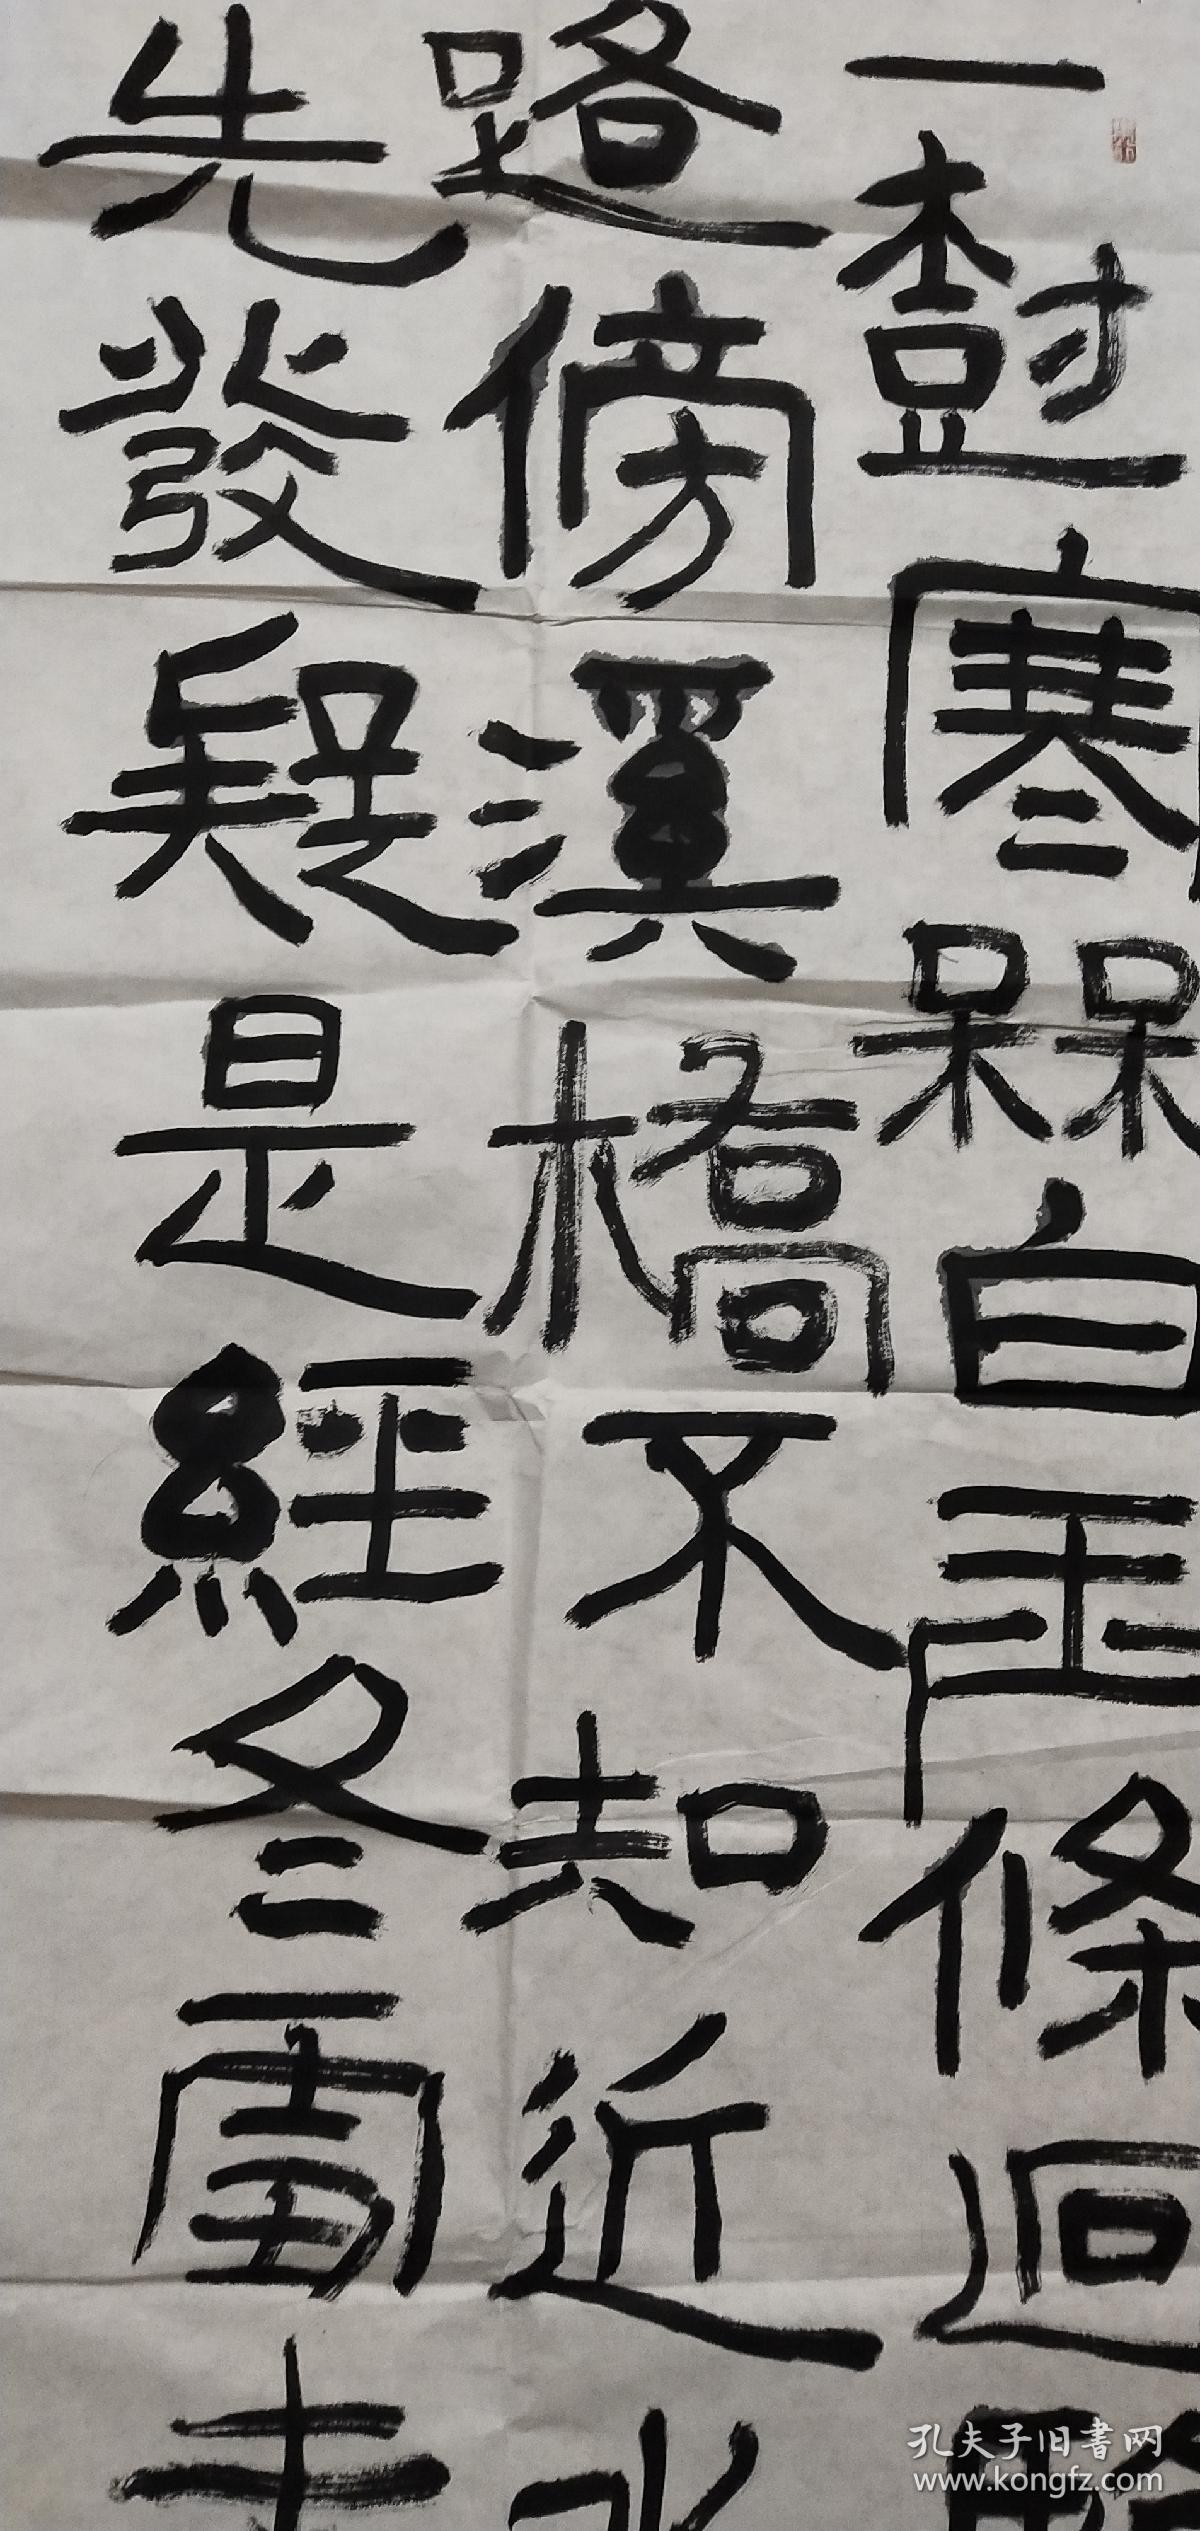 一樹寒槑白玉條迥
路傍溪橋不知近水
先發疑是經冬雪未
孔夫子旧書网
www.kongfz.com